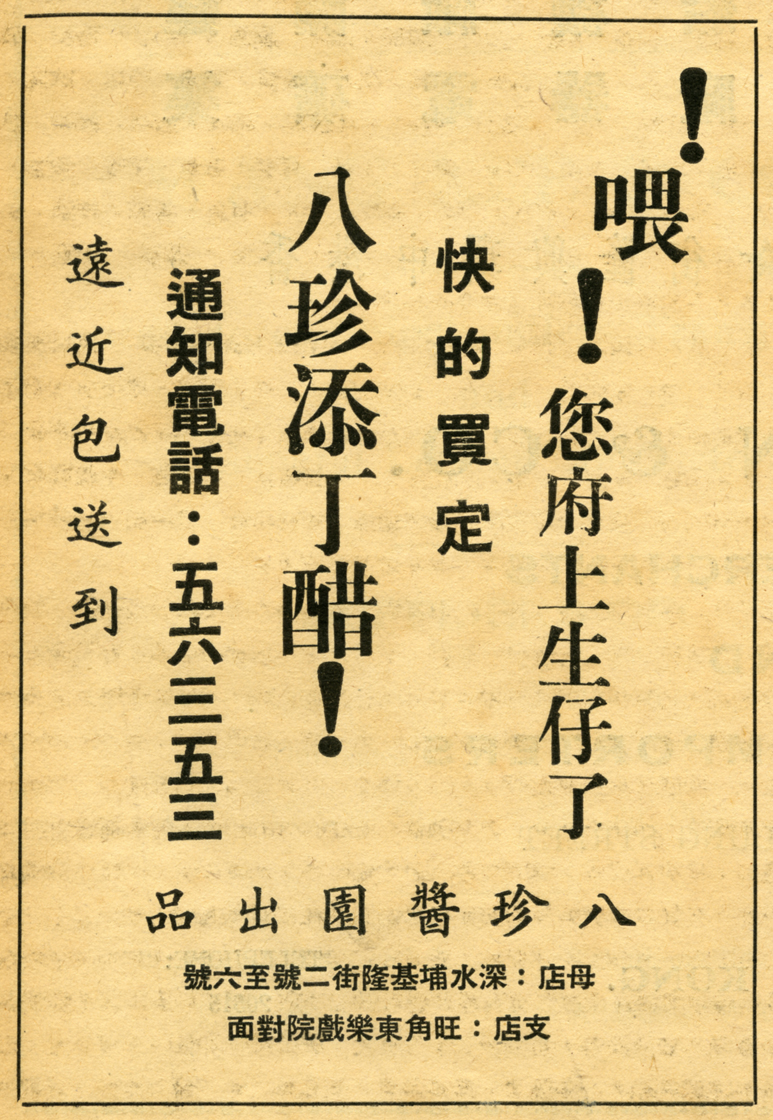 ！喂
！您府上生仔了
快的買定
八珍添丁醋！
通知電話：五六三五三
遠近包送到
八珍醬園出品
母店：深水埔基隆街二號至六號
支店：旺角東樂戲院對面